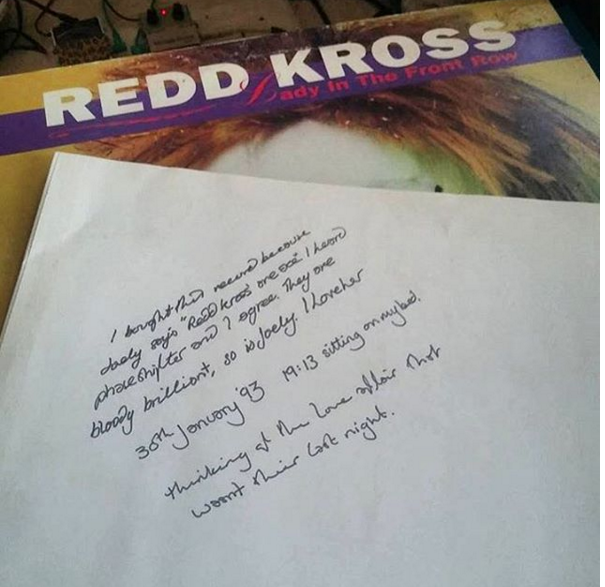 REDD KROSS
Lady In The Front Row
I bought this record because
Joely says "Redd Kross' are ace. I heard
phaseshifter and I agree. They are
bloody brilliant, so is Joely. I love her
30th January '93 19:13 sitting on my bed.
thinking of the love affair that
wasnt there last night.